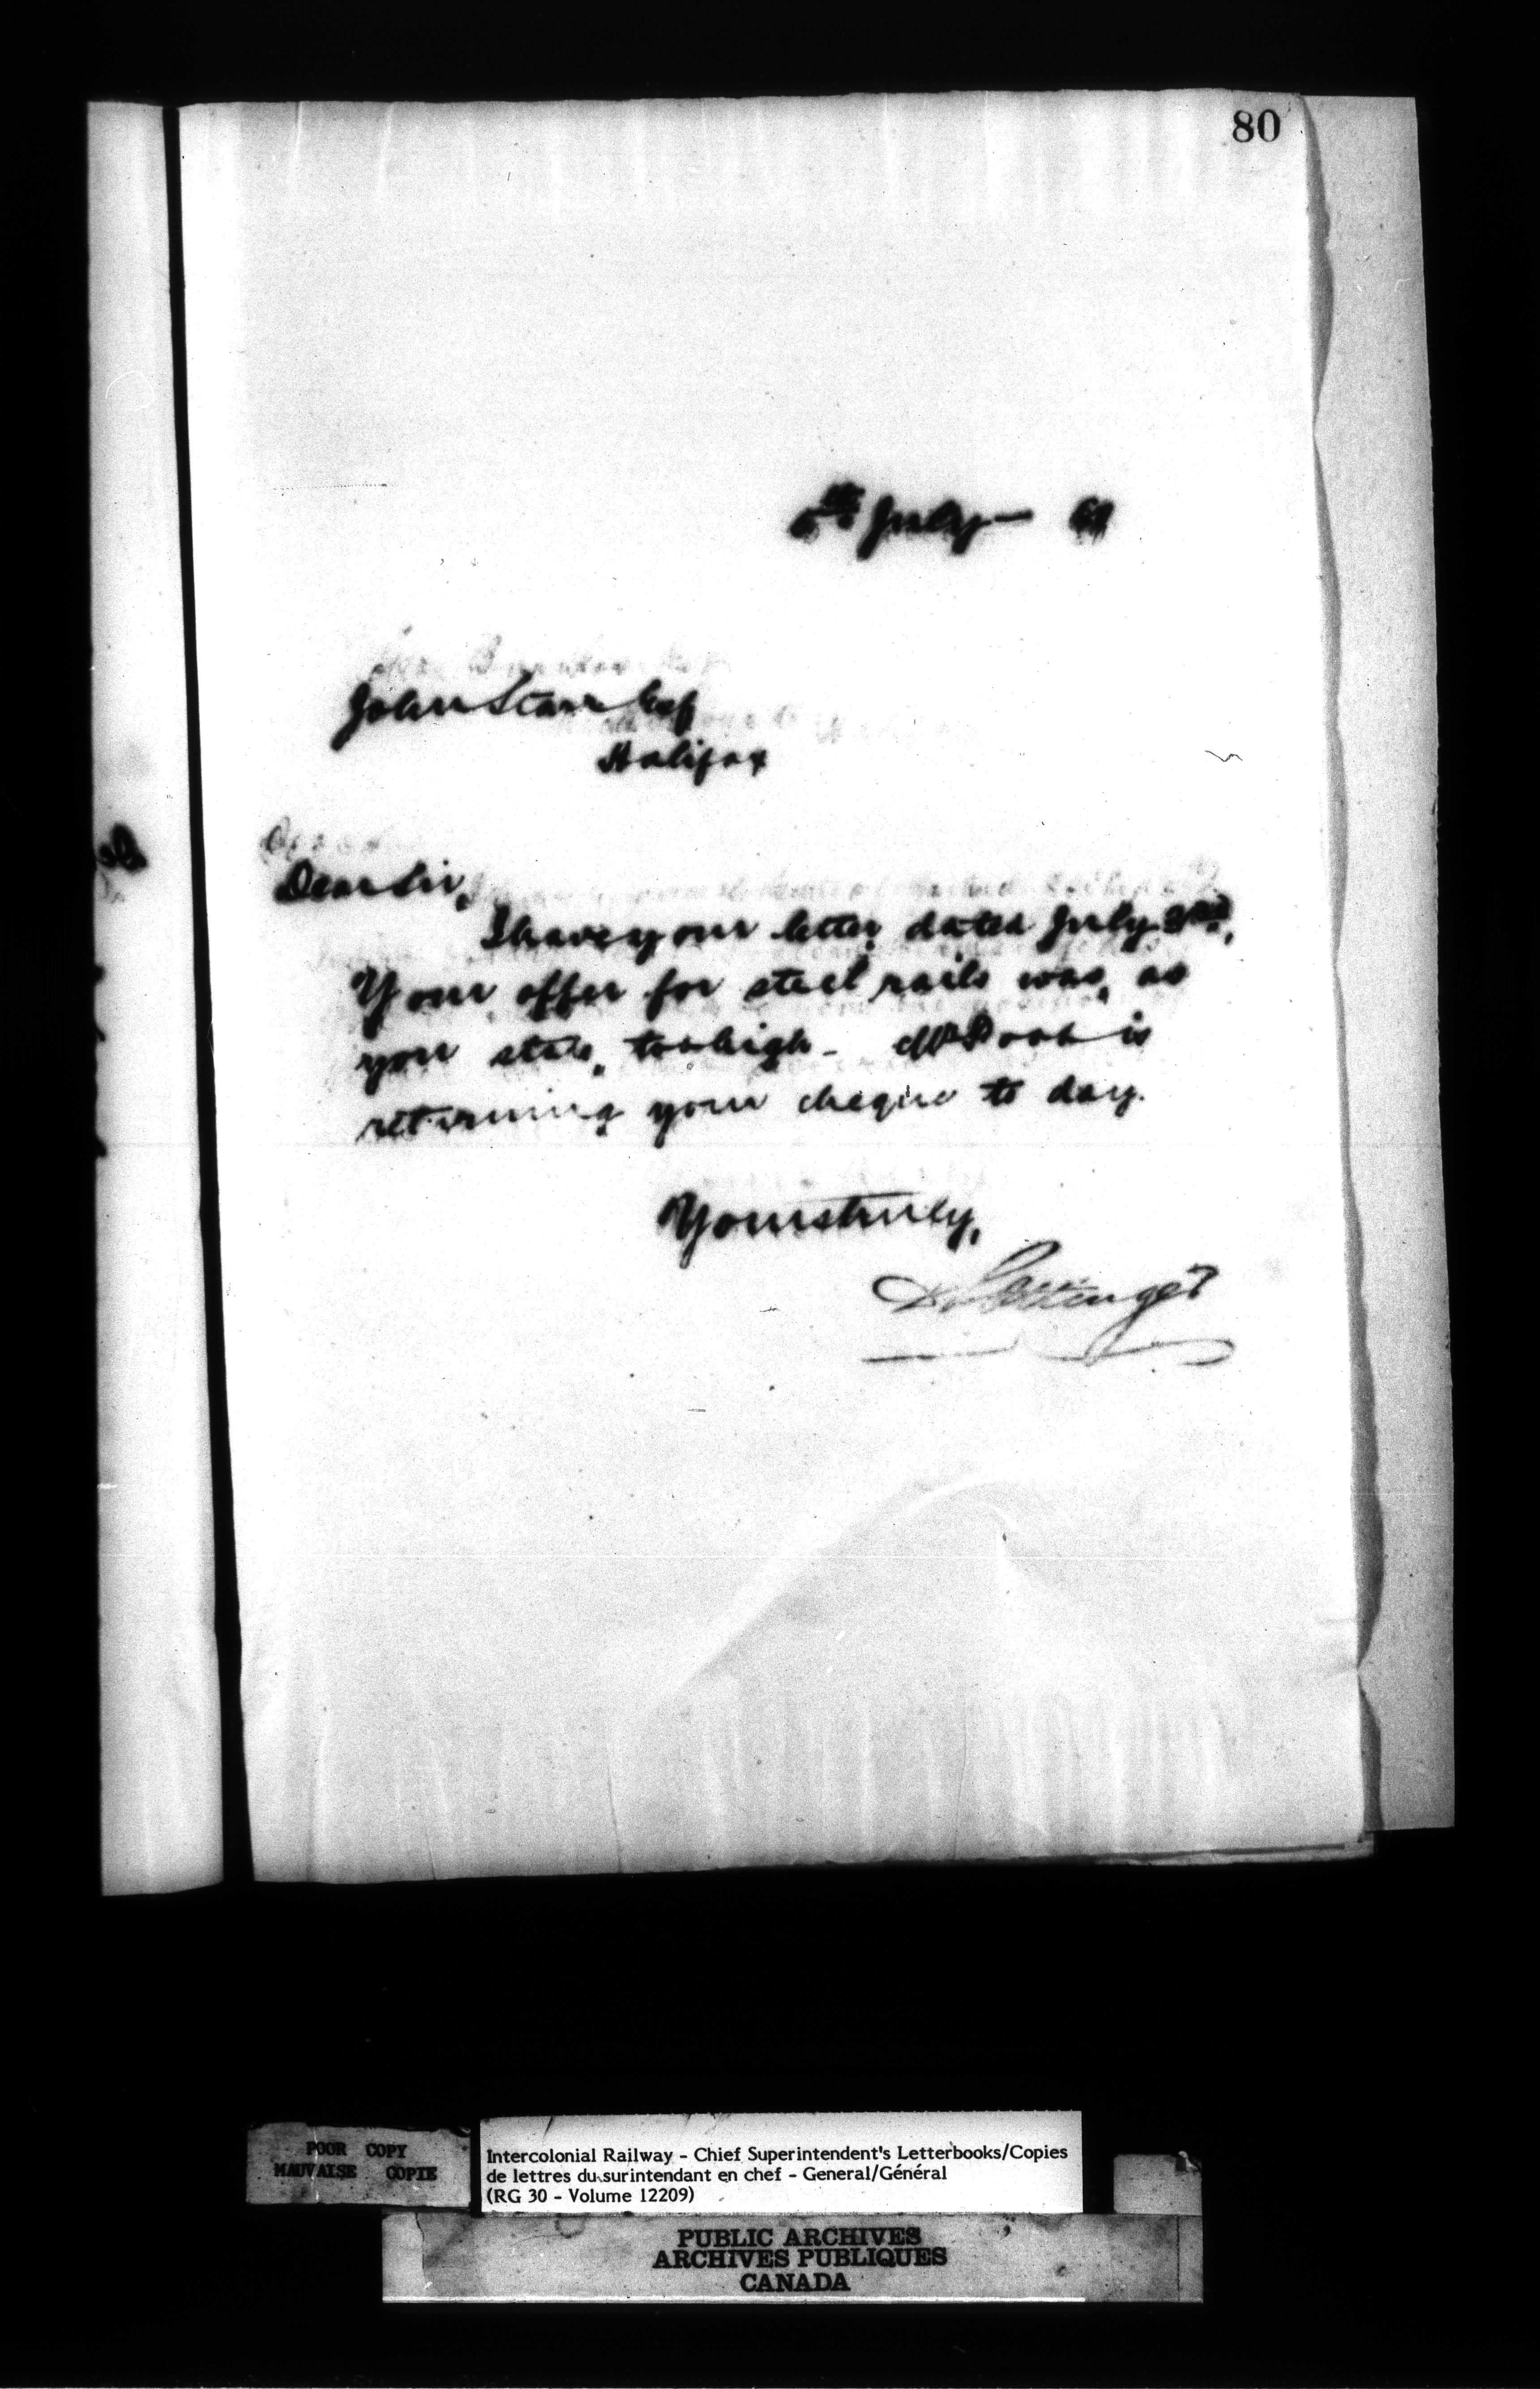 80
5th July —
John Starr Esq
Halifax
Dear Sir,
I have your letter dated July 3rd,
Your offer for steel rails was, as
you state, too high - Mr is
returning your cheque to day.
Yours truly,
D Pottinger
POOR COPY
MAUVAISE COPIE
Intercolonial Railway - Chief Superintendent's Letterbooks/Copies
de lettres du surintendant en chef - General/Général
(RG 30 - Volume 12209)
PUBLIC ARCHIVES
ARCHIVES PUBLIQUES
CANADA